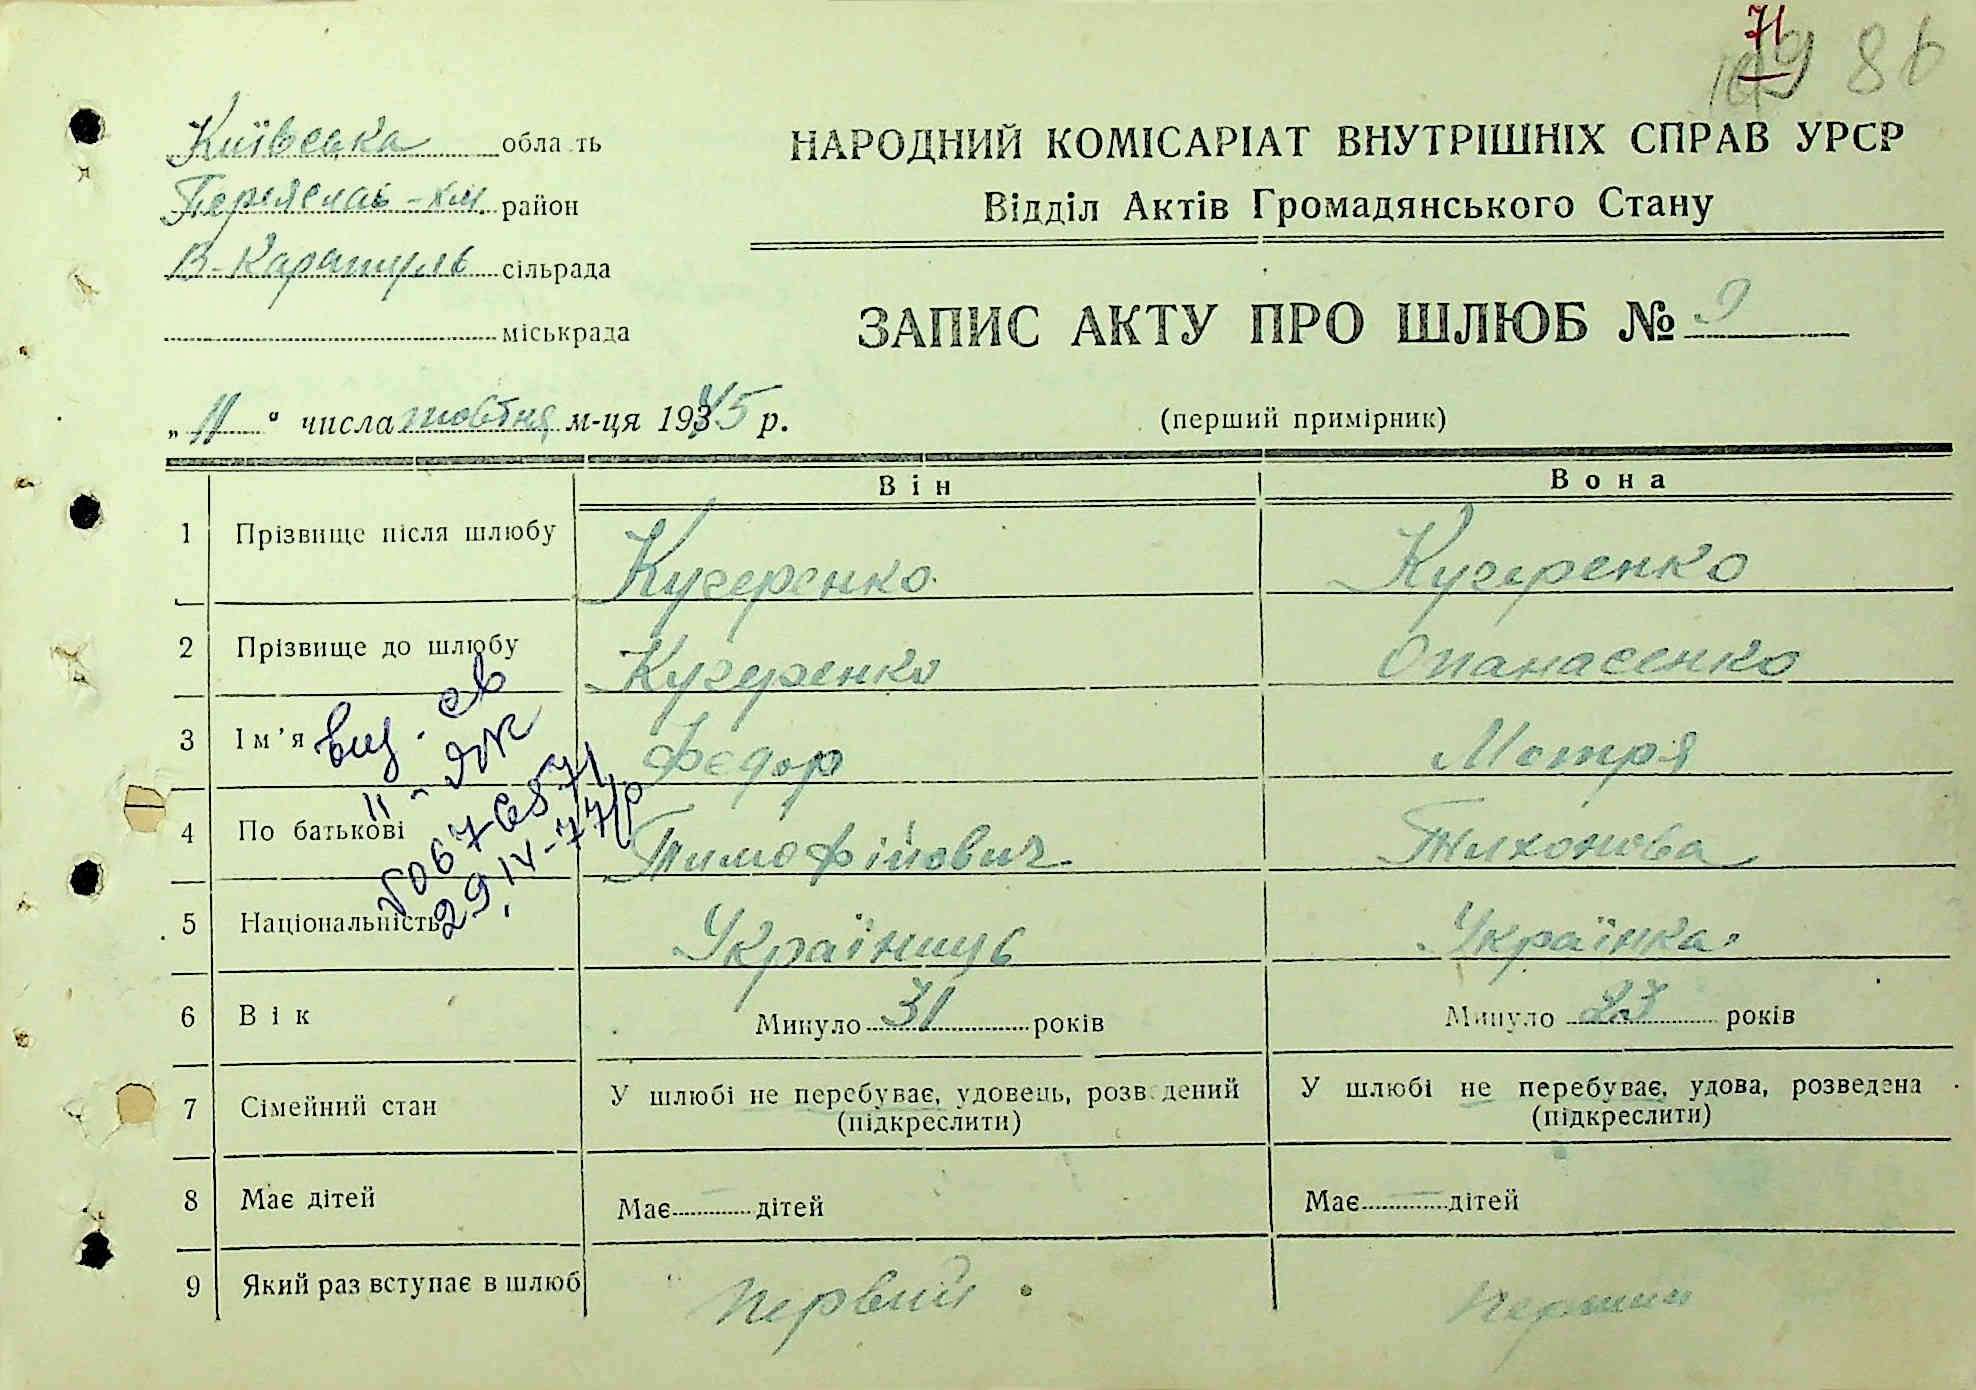 71
8б
Київська область
Переяслав-Хм. район
В-Каратуль сільрада
міськрада
НАРОДНИЙ КОМІСАРІАТ ВНУТРІШНІХ СПРАВ УРСР
Відділ Актів Громадянського Стану
ЗАПИС АКТУ ПРО ШЛЮБ № 9
„ 11 " числа жовтня м-ця 1945 р.
(перший примірник)
Він Вона
1 Прізвище після шлюбу Кучеренко Кучеренко
2 Прізвище до шлюбу Кучеренко Опанасенко
3 Ім'я Федор Мотря
4 По батькові Тимофійович Тихонова
5 Національність Українець Українка
6 Вік Минуло 31 років Минуло 23 років
7 Сімейний стан У шлюбі не перебуває, удовець, розведений (підкреслити) У шлюбі не перебуває, удова, розведена (підкреслити)
8 Має дітей Має — дітей Має — дітей
9 Який раз вступає в шлюб Первий Перший
29.IV-77р